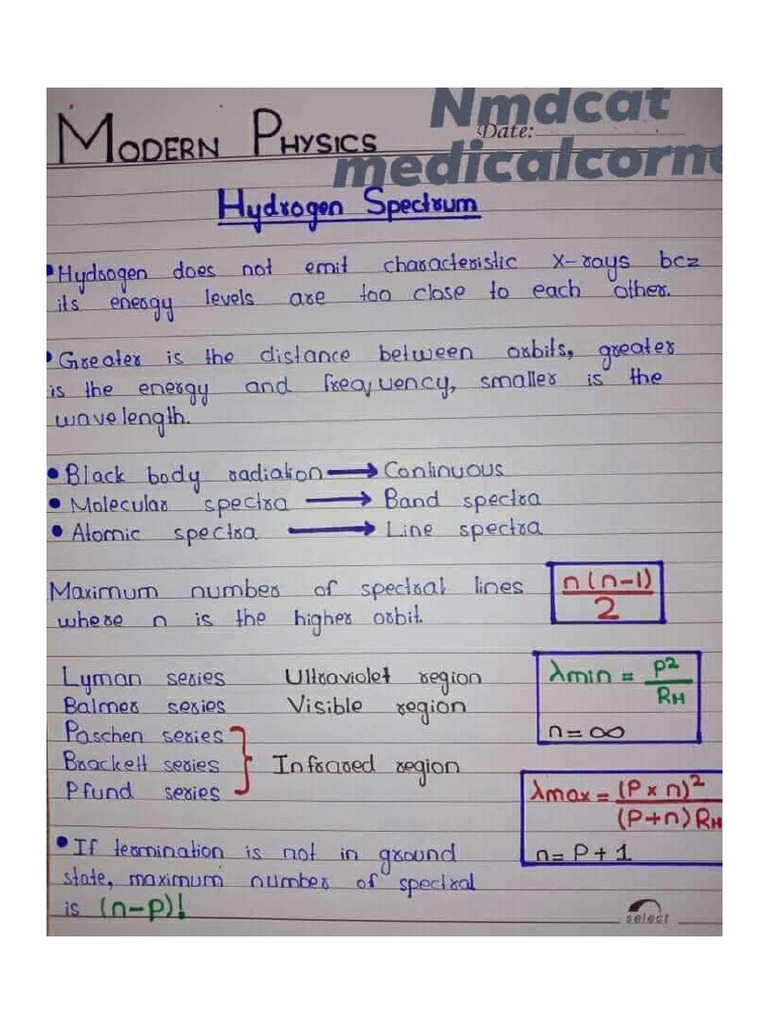 Nmdcat
Date:
medicalcorne
MODERN PHYSICS
Hydrogen Spectrum
• Hydrogen does not emit characteristic X-rays bcz
its energy levels are too close to each other.
• Greater is the distance between orbits, greater
is the energy and frequency, smaller is the
wavelength.
• Black body radiation → Continuous
• Molecular spectra → Band spectra
• Atomic spectra → Line spectra
Maximum number of spectral lines n(n-1)/2
where n is the higher orbit.
Lyman series Ultraviolet region
Balmer series Visible region
Paschen series
Brackett series } Infrared region
Pfund series
λmin = P²/RH
n=∞
λmax = (P x n)²/(P+n)RH
n= P+1
• If termination is not in ground
state, maximum number of spectral
is (n-P)!
select